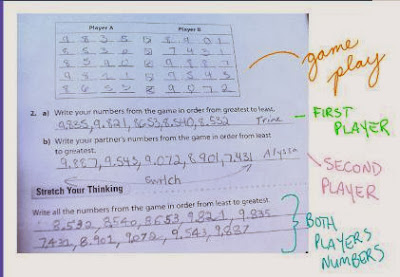 Player A Player B
9 8 3 5 8 9 0 1
8 5 3 2 7 4 3 1
8 5 4 0 9 8 8 7
9 8 2 1 9 5 4 3
8 6 5 3 9 0 7 2
game
play
2. a) Write your numbers from the game in order from greatest to least.
9.835, 9.821, 8.653, 8.540, 8.532
FIRST
PLAYER
b) Write your partner's numbers from the game in order from least
to greatest.
9.887, 9.543, 9.072, 8.901, 7.431 Alyssa
Switch
SECOND
PLAYER
Stretch Your Thinking
Write all the numbers from the game in order from least to greatest.
8.532, 8.540, 8.653, 9.821, 9.835
7.431, 8.901, 9.072, 9.543, 9.887
BOTH
PLAYERS
NUMBERS